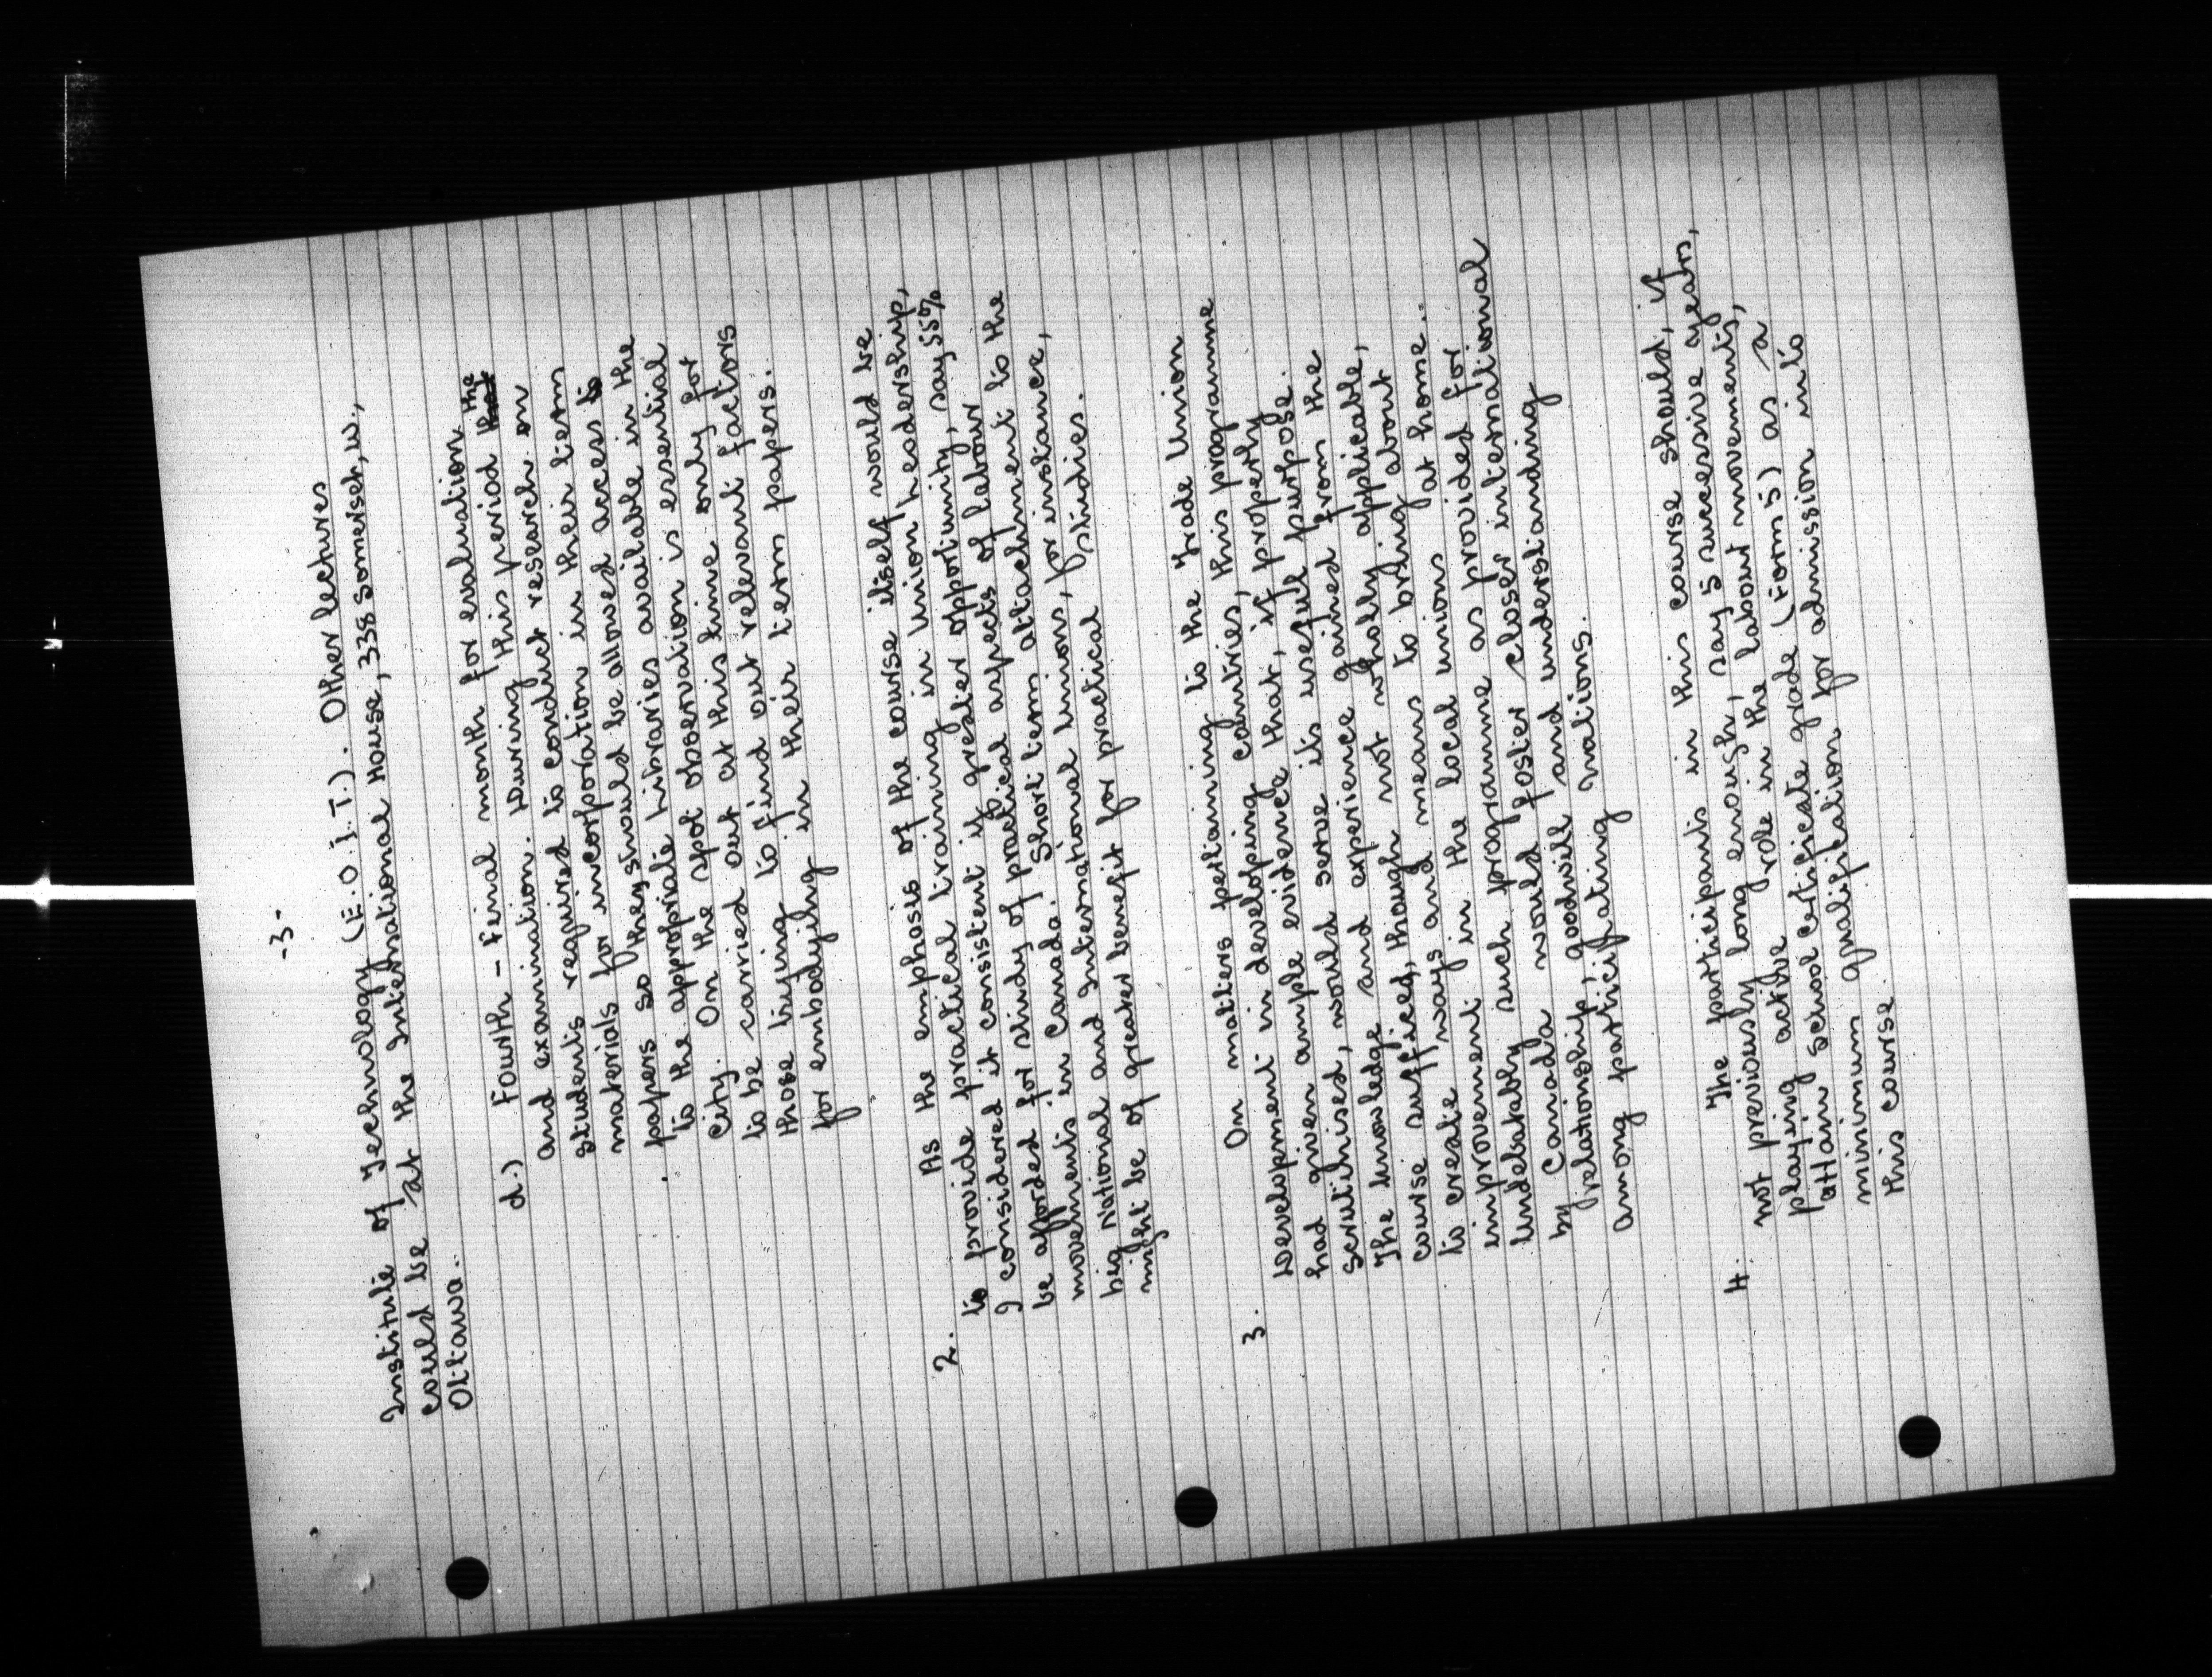 -3-
Institute of Technology (E.O.I.T.). Other lectures
could be at the International House, 338 Somerset, W.,
Ottawa.
d.) Fourth - Final month for evaluation
and examination. During this period that the
students required to conduct research on
materials for incorporation in their term
papers so they should be allowed access to
to the appropriate libraries available in the
City. On the spot observation is essential
to be carried out at this time only for
those trying to find out relevant factors
for embodying in their term papers.
2. As the emphasis of the course itself would be
to provide practical training in Union leadership,
I considered it consistent if greater opportunity, say 55%
be afforded for study of practical aspects of labour
movements in Canada. Short term attachment to the
big National and International Unions, for instance,
might be of greater benefit for practical studies.
3. On matters pertaining to the Trade Union
Development in developing countries, this programme
had given ample evidence that, if properly
scrutinised, would serve its useful purpose.
The knowledge and experience gained from the
course sufficed, though not wholly applicable,
to create ways and means to bring about
improvement in the local unions at home..
Undebatably such programme as provided for
by Canada would foster closer international
relationship, goodwill and understanding
among participating nations.
4. The participants in this course should, if
not previously long enough, say 5 successive years,
playing active role in the labour movements,
attain School Certificate grade (Form 5) as a
minimum qualification for admission into
this course.